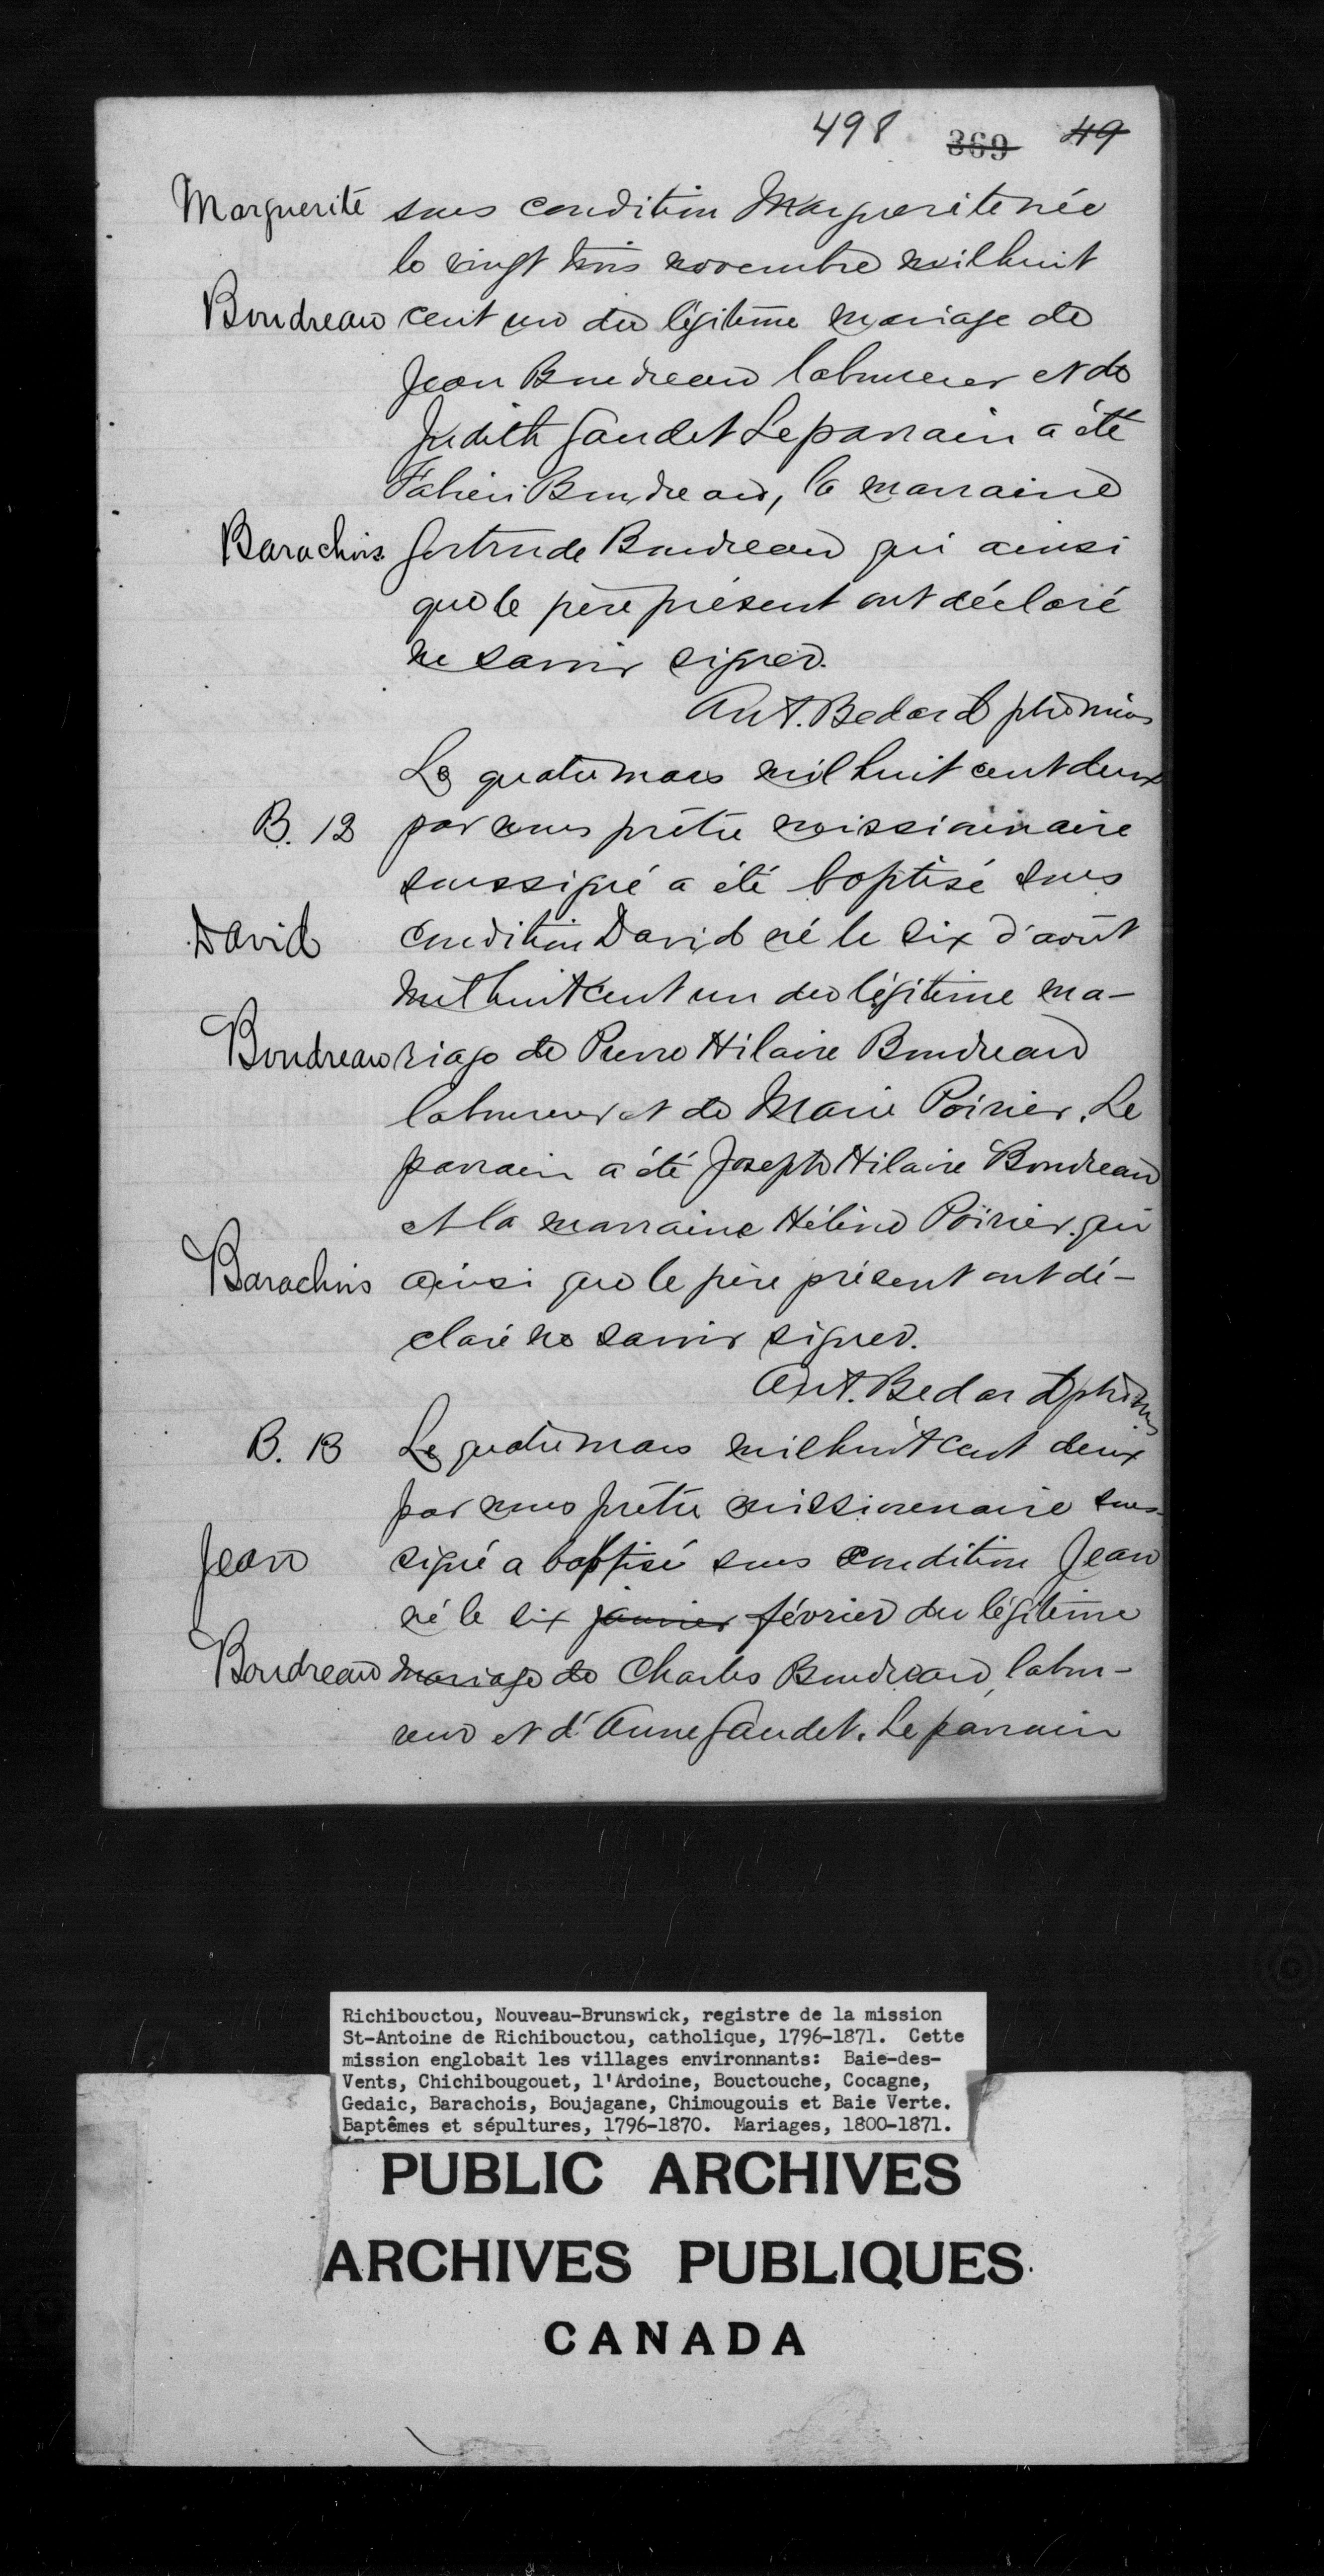 498 369 49
Marguerite sous condition Marguerite née
le vingt trois novembre mil huit
Boudreau cent un du légitime mariage de
Jean Boudreau laboureur et de
Judith Gaudet Le parrain a été
Fabien Boudreau, la marraine
Barachois Gertrude Boudreau qui ainsi
que le père présent ont déclaré
ne savoir signer.
Ant. Bedard ptre miss
Le quatre mars mil huit cent deux
B. 12 par nous prêtre missionnaire
soussigné a été baptisé sous
David condition David né le six d'août
mil huit cent un du légitime ma-
Boudreau riage de Pierre Hilaire Boudreau
laboureur et de Marie Poirier. Le
parrain a été Joseph Hilaire Boudreau
et la marraine Hélène Poirier. qui
Barachois ainsi que le père présent ont dé-
claré ne savoir signer.
Ant. Bedard ptre miss
B. 13 Le quatre mars mil huit cent deux
par nous prêtre missionnaire sous-
Jean signé a baptisé sous condition Jean
né le six janvier février du légitime
Boudreau mariage de Charles Boudreau, labou-
reur et d'Anne Gaudet. Le parrain
Richibouctou, Nouveau-Brunswick, registre de la mission
St-Antoine de Richibouctou, catholique, 1796-1871. Cette
mission englobait les villages environnants: Baie-des-
Vents, Chichibougouet, l'Ardoine, Bouctouche, Cocagne,
Gedaic, Barachois, Boujagane, Chimougouis et Baie Verte.
Baptêmes et sépultures, 1796-1870. Mariages, 1800-1871.
PUBLIC ARCHIVES
ARCHIVES PUBLIQUES
CANADA